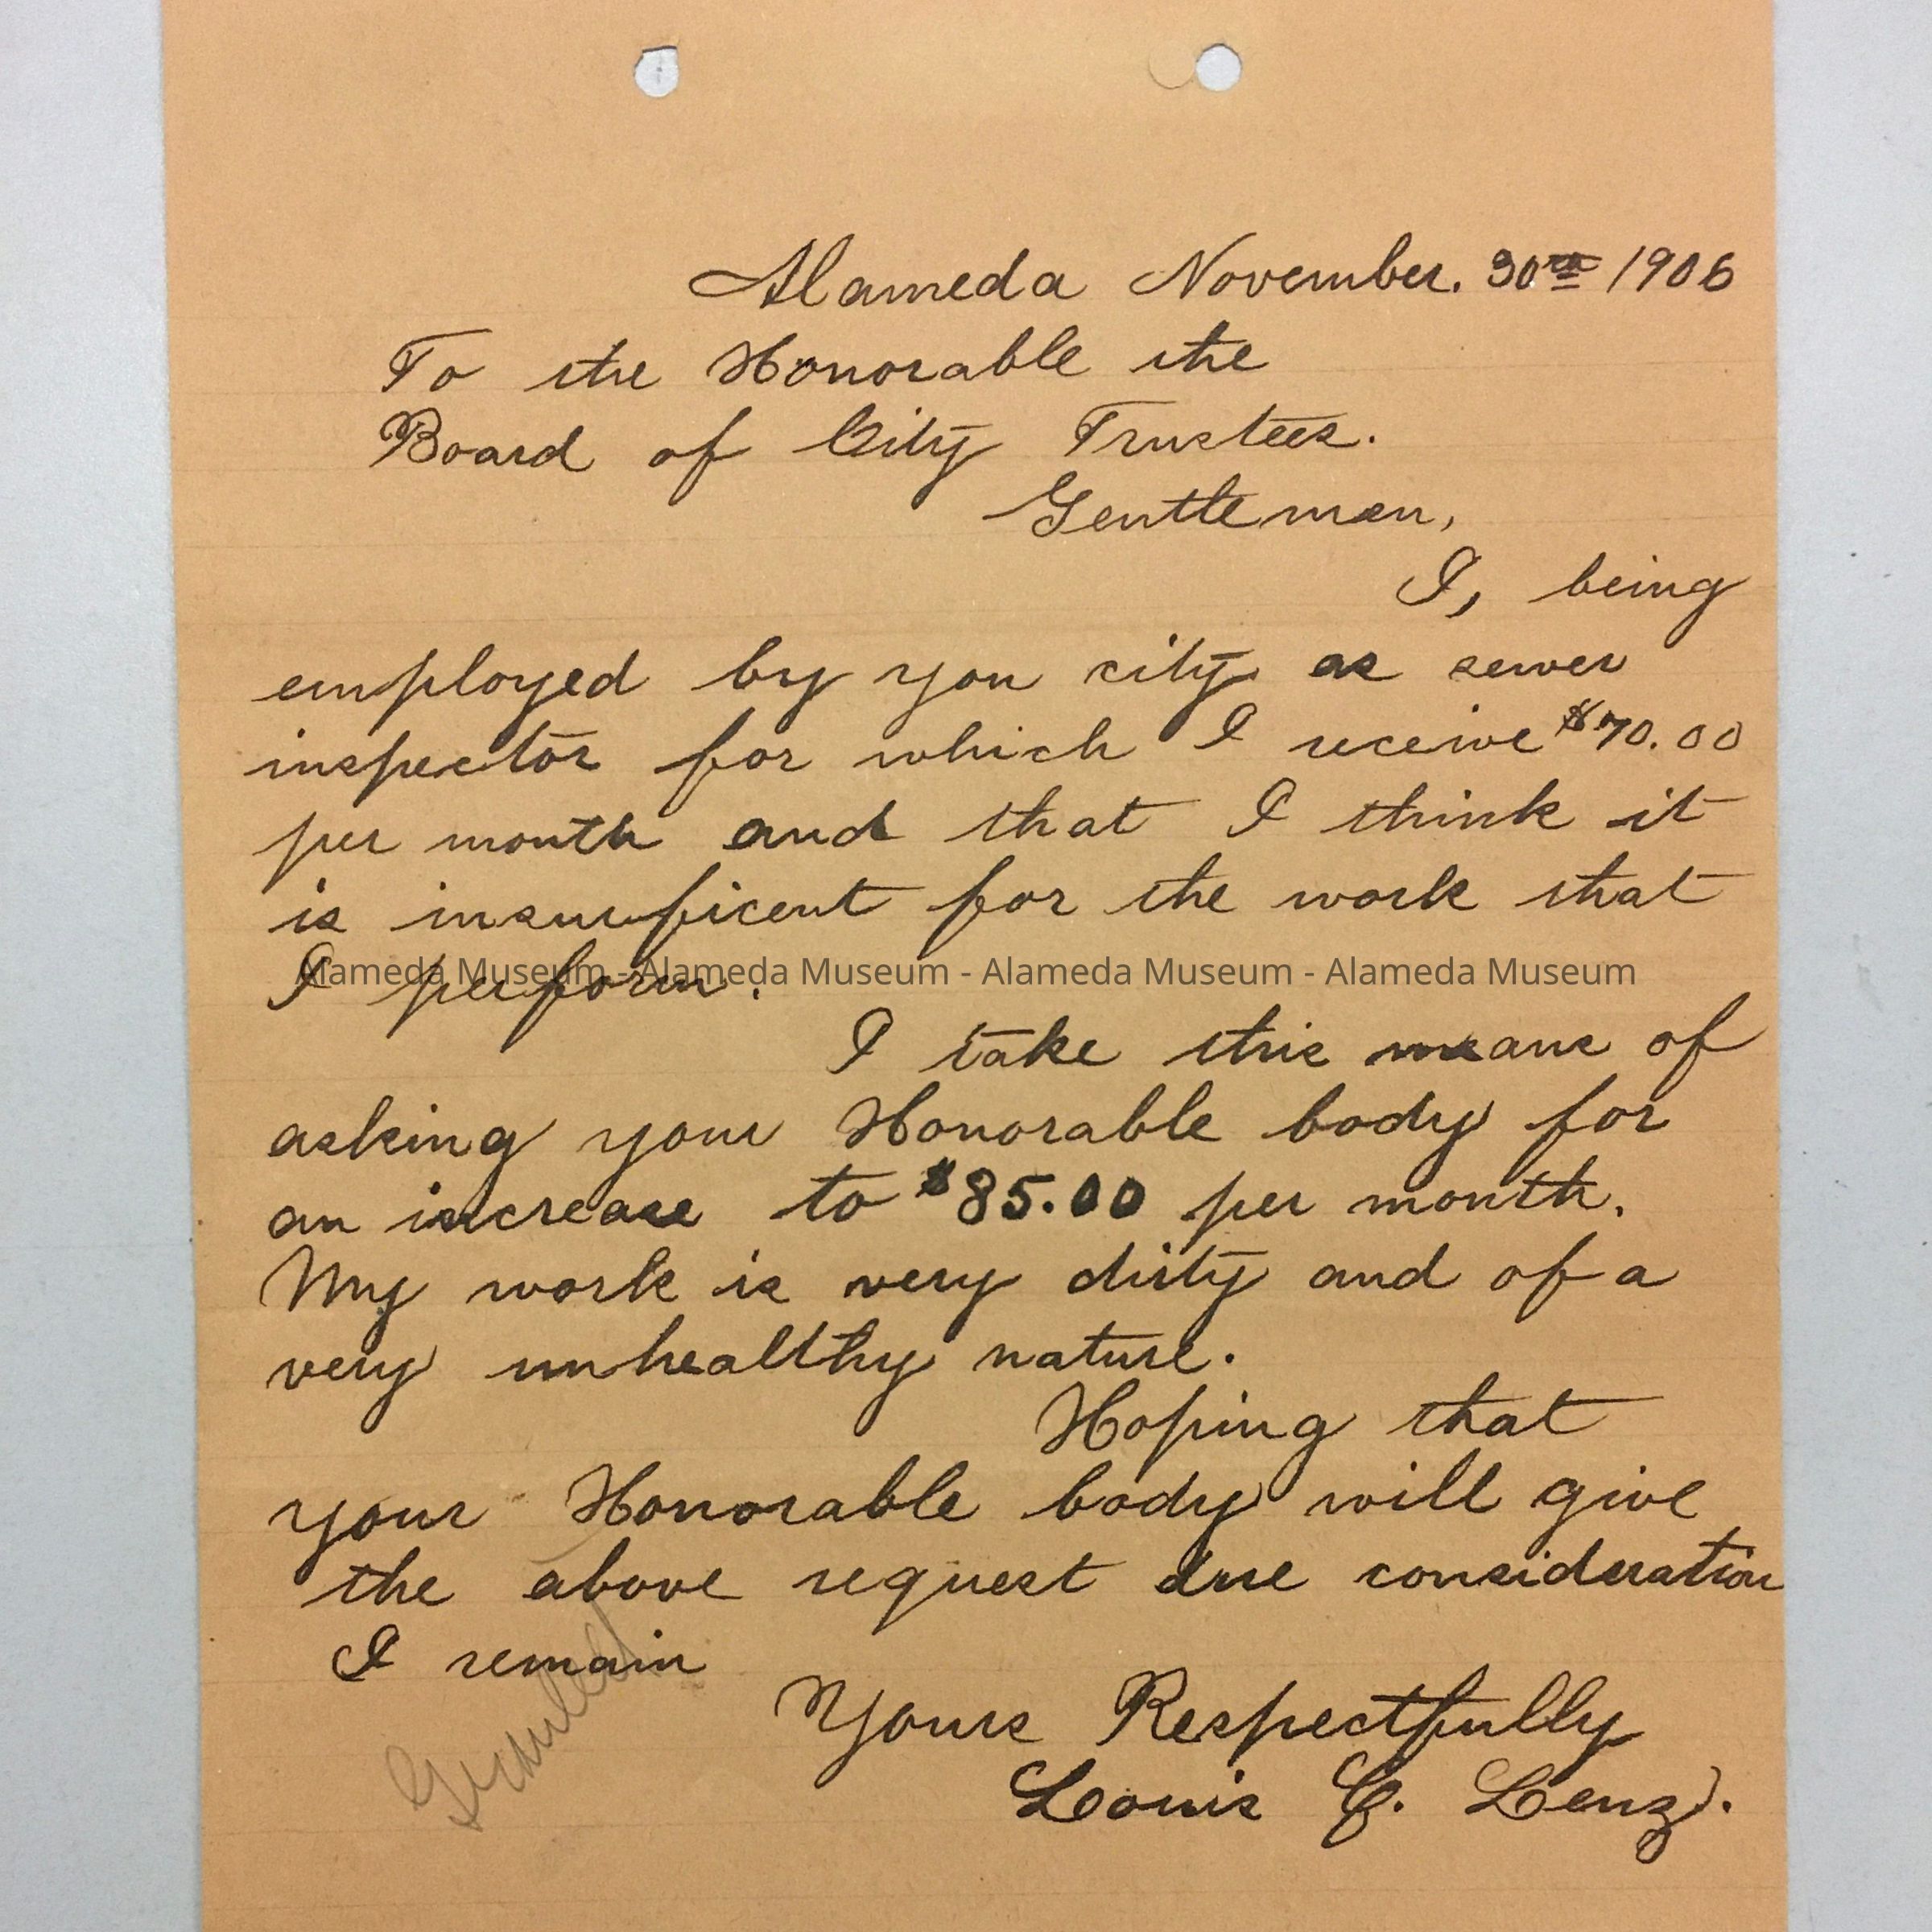 Alameda November. 30th 1906
To the Honorable the
Board of City Trustees.
Gentlemen,
I, being
employed by you city as sewer
inspector for which I receive $70.00
per month and that I think it
is insuficent for the work that
I perform.
Alameda Museum - Alameda Museum - Alameda Museum - Alameda Museum
I take this means of
asking your Honorable body for
an increase to $85.00 per month.
My work is very dirty and of a
very unhealthy nature.
Hoping that
your Honorable body will give
the above request due consideration
I remain
Granted
Yours Respectfully
Louis C. Lenz.